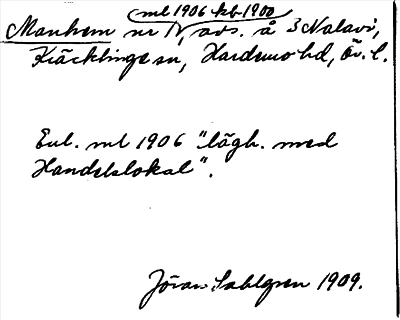 (ml 1906 kb 1900)
Manhem nr 1/1, avs. å 3 Nalavi,
Kräcklinge sn, Hardemo hd, Ör. l.
Enl. ml 1906 "lägh. med
Handelslokal".
Jöran Sahlgren 1909.